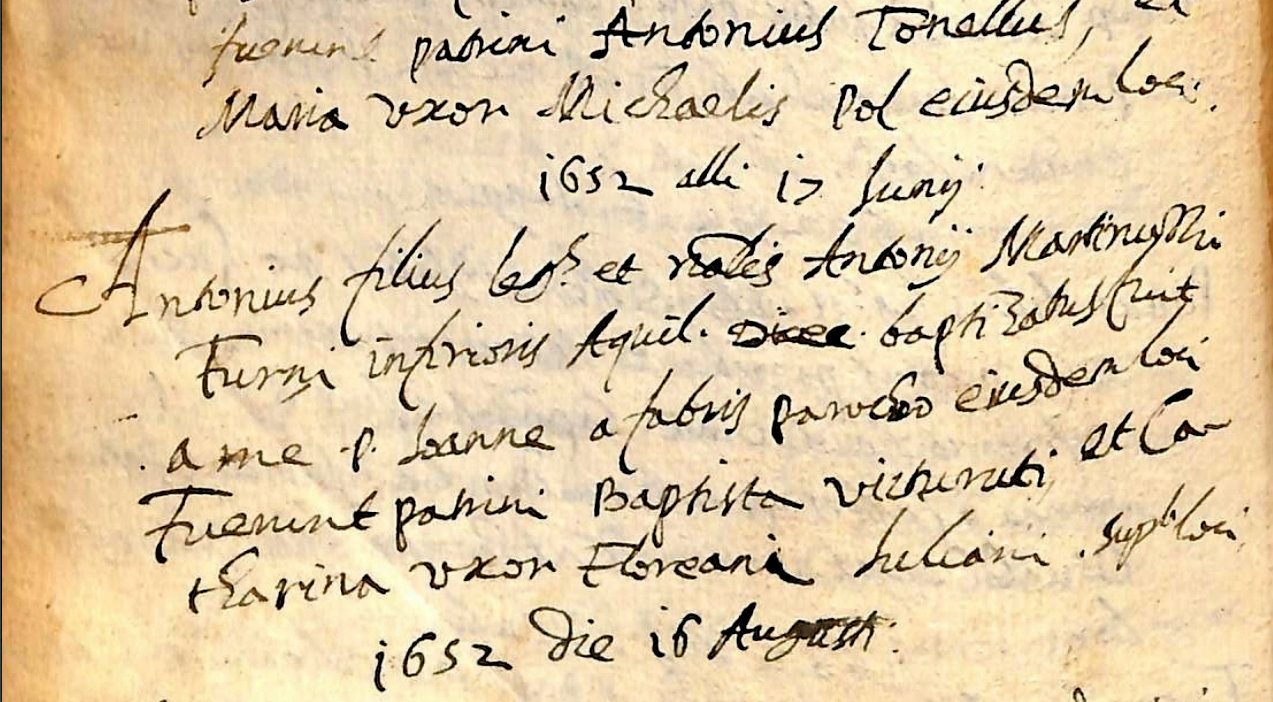 fuerunt patrini Antonius Tonellus, et
Maria uxor Michaelis Pol eiusdem loci.
1652 alli 17 Junij
Antonius filius leg.s et nãlis Antonij
Furni inferioris Aquil. baptizatus fuit
a me p. Joanne a fabris parocho eiusdem loci
Fuerunt patrini Baptista et Ca-
tharina uxor Floreani Juliani sup.ti loci
1652 Die 16 Augusti.